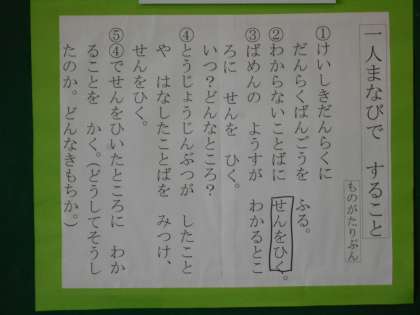 一人まなびで すること
ものがたりぶん
①けいしきだんらくに
だんらくばんごうを ふる。
②わからないことばに せんをひく。
③ばめんの ようすが わかるとこ
ろに せんを ひく。
いつ?どんなところ?
④とうじょうじんぶつが したこと
や はなしたことばを みつけ、
せんをひく。
⑤④でせんをひいたところに わか
ることを かく。(どうしてそうし
たのか。どんなきもちか。)